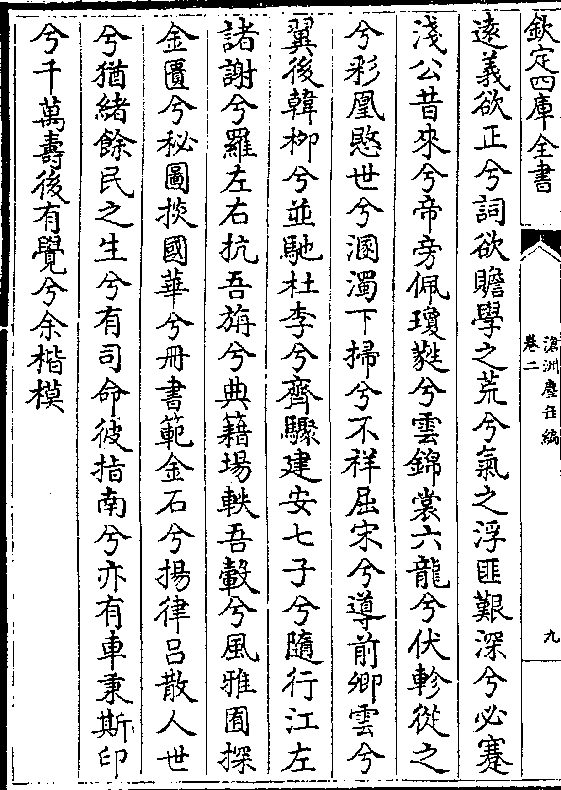 欽定四庫全書
滄洲塵缶編
卷二
九
遠義欲正兮詞欲贍學之荒兮氣之浮匪艱深兮必蹇
淺公昔來兮帝旁佩瓊蕤兮雲錦裳六龍兮伏軫從之
兮彩凰愍世兮溷濁下掃兮不祥屈宋兮導前卿雲兮
翼後韓柳兮並馳杜李兮齊驟建安七子兮隨行江左
諸謝兮羅左右抗吾旃兮典籍場軼吾轂兮風雅囿探
金匱兮秘圖掞國華兮冊書範金石兮揚律呂散人世
兮猶緒餘民之生兮有司命彼指南兮亦有車秉斯印
兮千萬壽後有覺兮余楷模